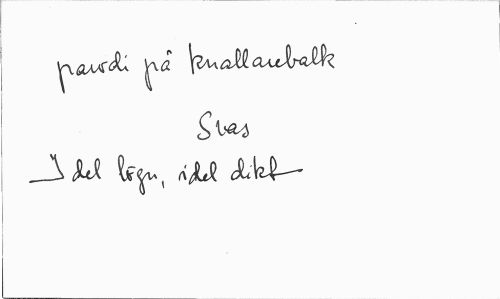 parodi på knallarebalk
Svas
Idel lögn, idel dikt